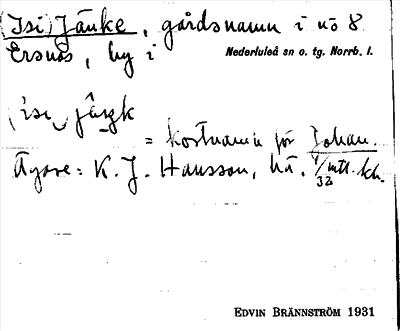 (Isi) Jänke, gårdsnamn i nö 8
Ersnäs, by i Nederluleå sn o. tg. Norrb. l.
= kortnamn för Johan.
Ägare: K. J. Hansson, hä, 1/32 mtl. kh.
EDVIN BRÄNNSTRÖM 1931